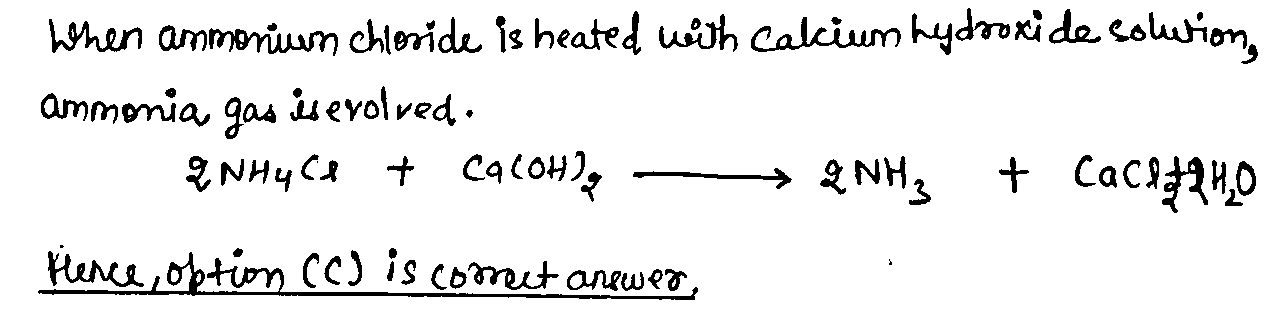 When ammonium chloride is heated with calcium hydroxide solution,
ammonia gas is evolved.
2NH4Cl + Ca(OH)2 ⟶ 2NH3 + CaCl2+2H2O
Hence, option (C) is correct answer.